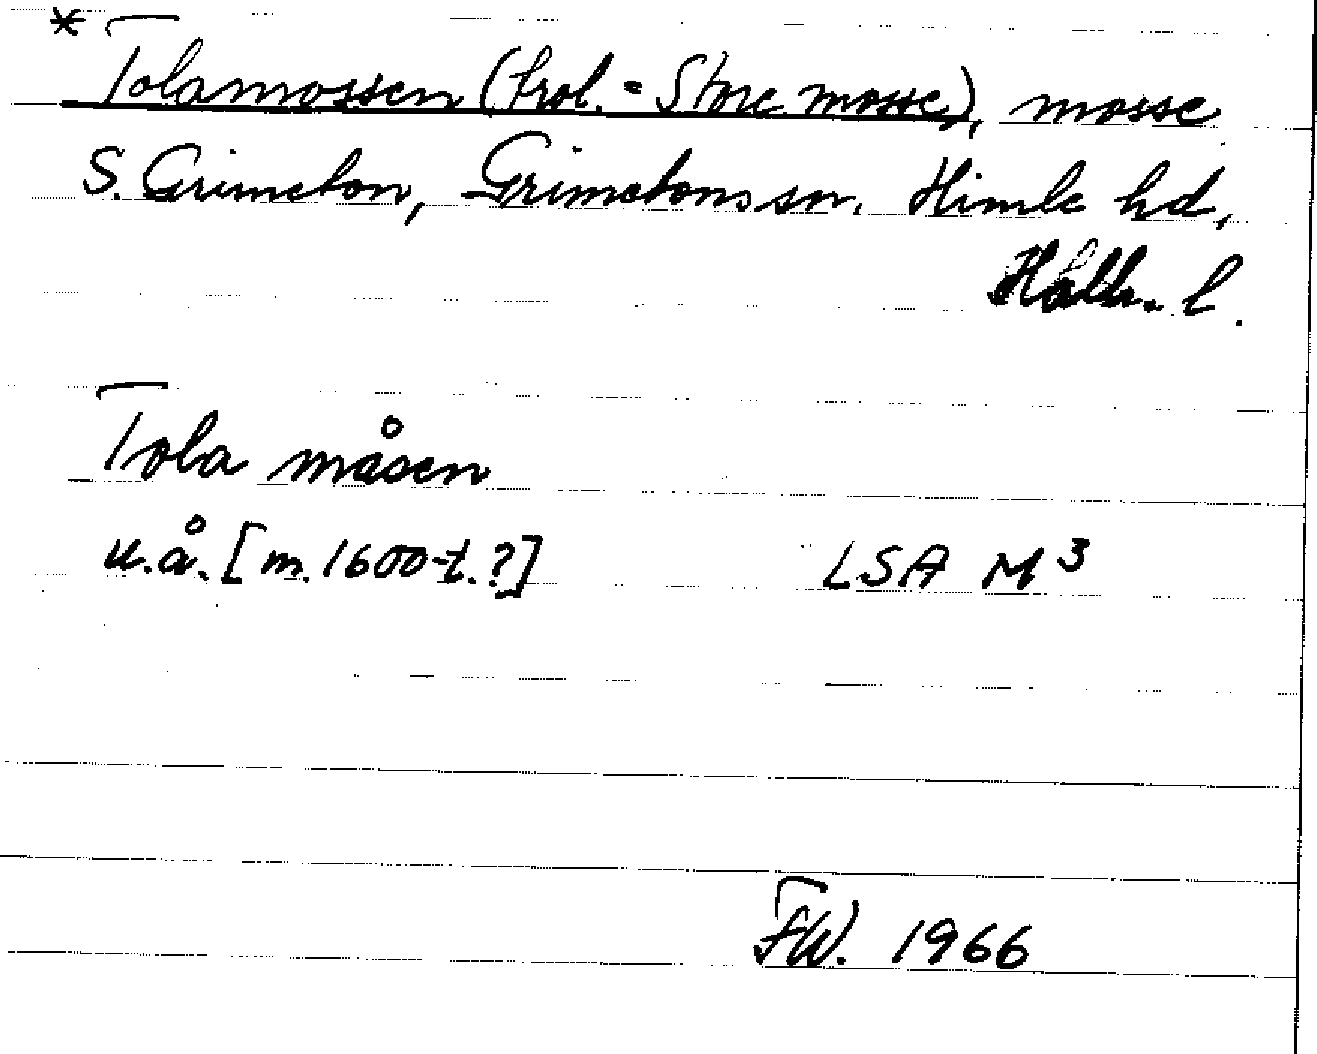 * Tolamossen (trol. = Store mosse), mosse
S. Grimeton, Grimetons sn. Himle hd,
Hall. l.
Tola måsen
u.å. [m. 1600-t.?] LSA M3
FW. 1966